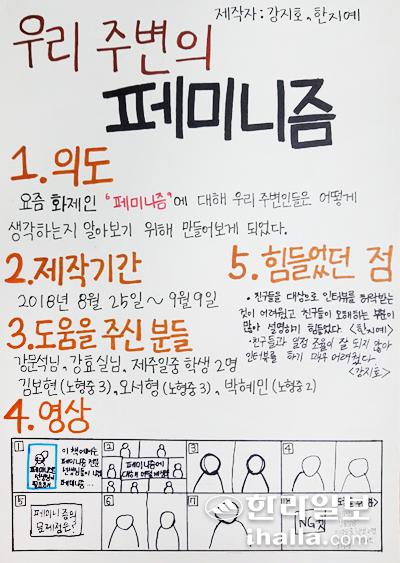 제작자: 강지호, 한지예
우리 주변의
페미니즘
1. 의도
요즘 화제인 "페미니즘"에 대해 우리 주변인들은 어떻게
생각하는지 알아보기 위해 만들어보게 되었다.
2. 제작기간
2018년 8월 25일~9월 9일
3. 도움을 주신 분들
강문석님, 강효실님, 제주일중 학생 2명
김보현(노형중3), 오서형(노형중3), 박혜민(노형중2)
5. 힘들었던 점
• 친구들을 대상으로 인터뷰를 허락받는
것이 어려웠고 친구들이 오해하는 부분이
많아 설명하기 힘들었다. <한지예>
• 친구들과 일정 조율이 잘 되지 않아
인터뷰를 하기 매우 어려웠다.
<강지호>
4. 영상
1
페미니스트
선생님이
필요해
이 책에서는
페미니즘
선생님들이
페미니즘 ...
2
페미니즘에
대해 어떻게 생각
3
4
5
페미니즘의
문제점은?
6
7
NG컷
한라일보
ihalla.com